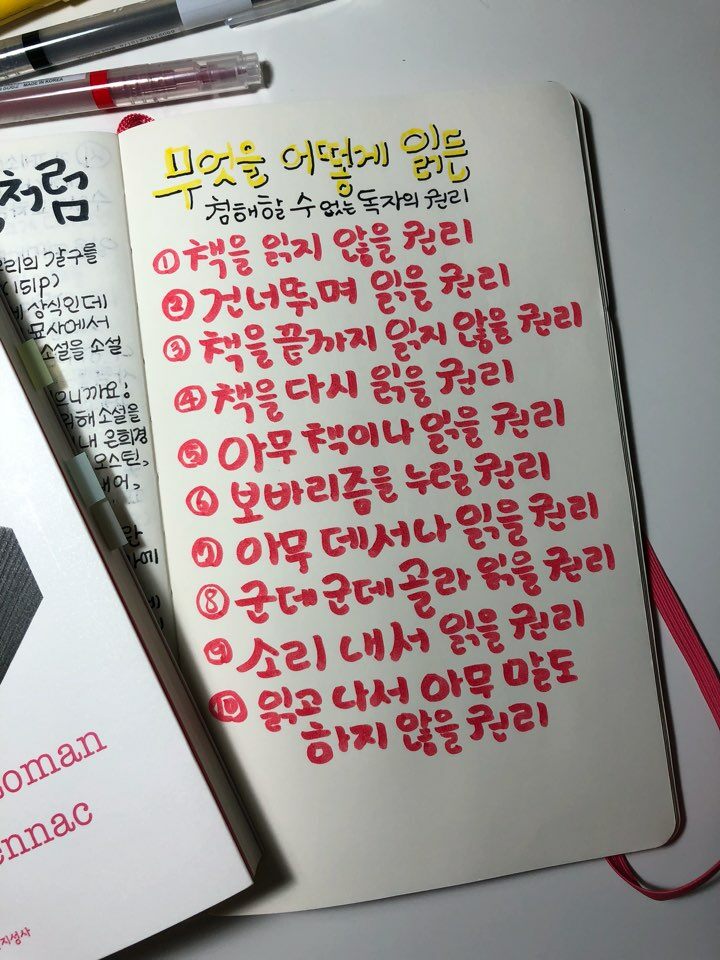 MADE IN KOREA
처럼
갈구를
(151p)
상식인데
묘사에서
소설을 소설
으니까요!
위해 소설을
내 은희경
오스틴,
무엇을 어떻게 읽든
침해할 수 없는 독자의 권리
① 책을 읽지 않을 권리
② 건너뛰며 읽을 권리
③ 책을 끝까지 읽지 않을 권리
④ 책을 다시 읽을 권리
⑤ 아무 책이나 읽을 권리
⑥ 보바리즘을 누릴 권리
⑦ 아무 데서나 읽을 권리
⑧ 군데군데 골라 읽을 권리
⑨ 소리 내서 읽을 권리
⑩ 읽고 나서 아무 말도
하지 않을 권리
oman
ennac
지성사